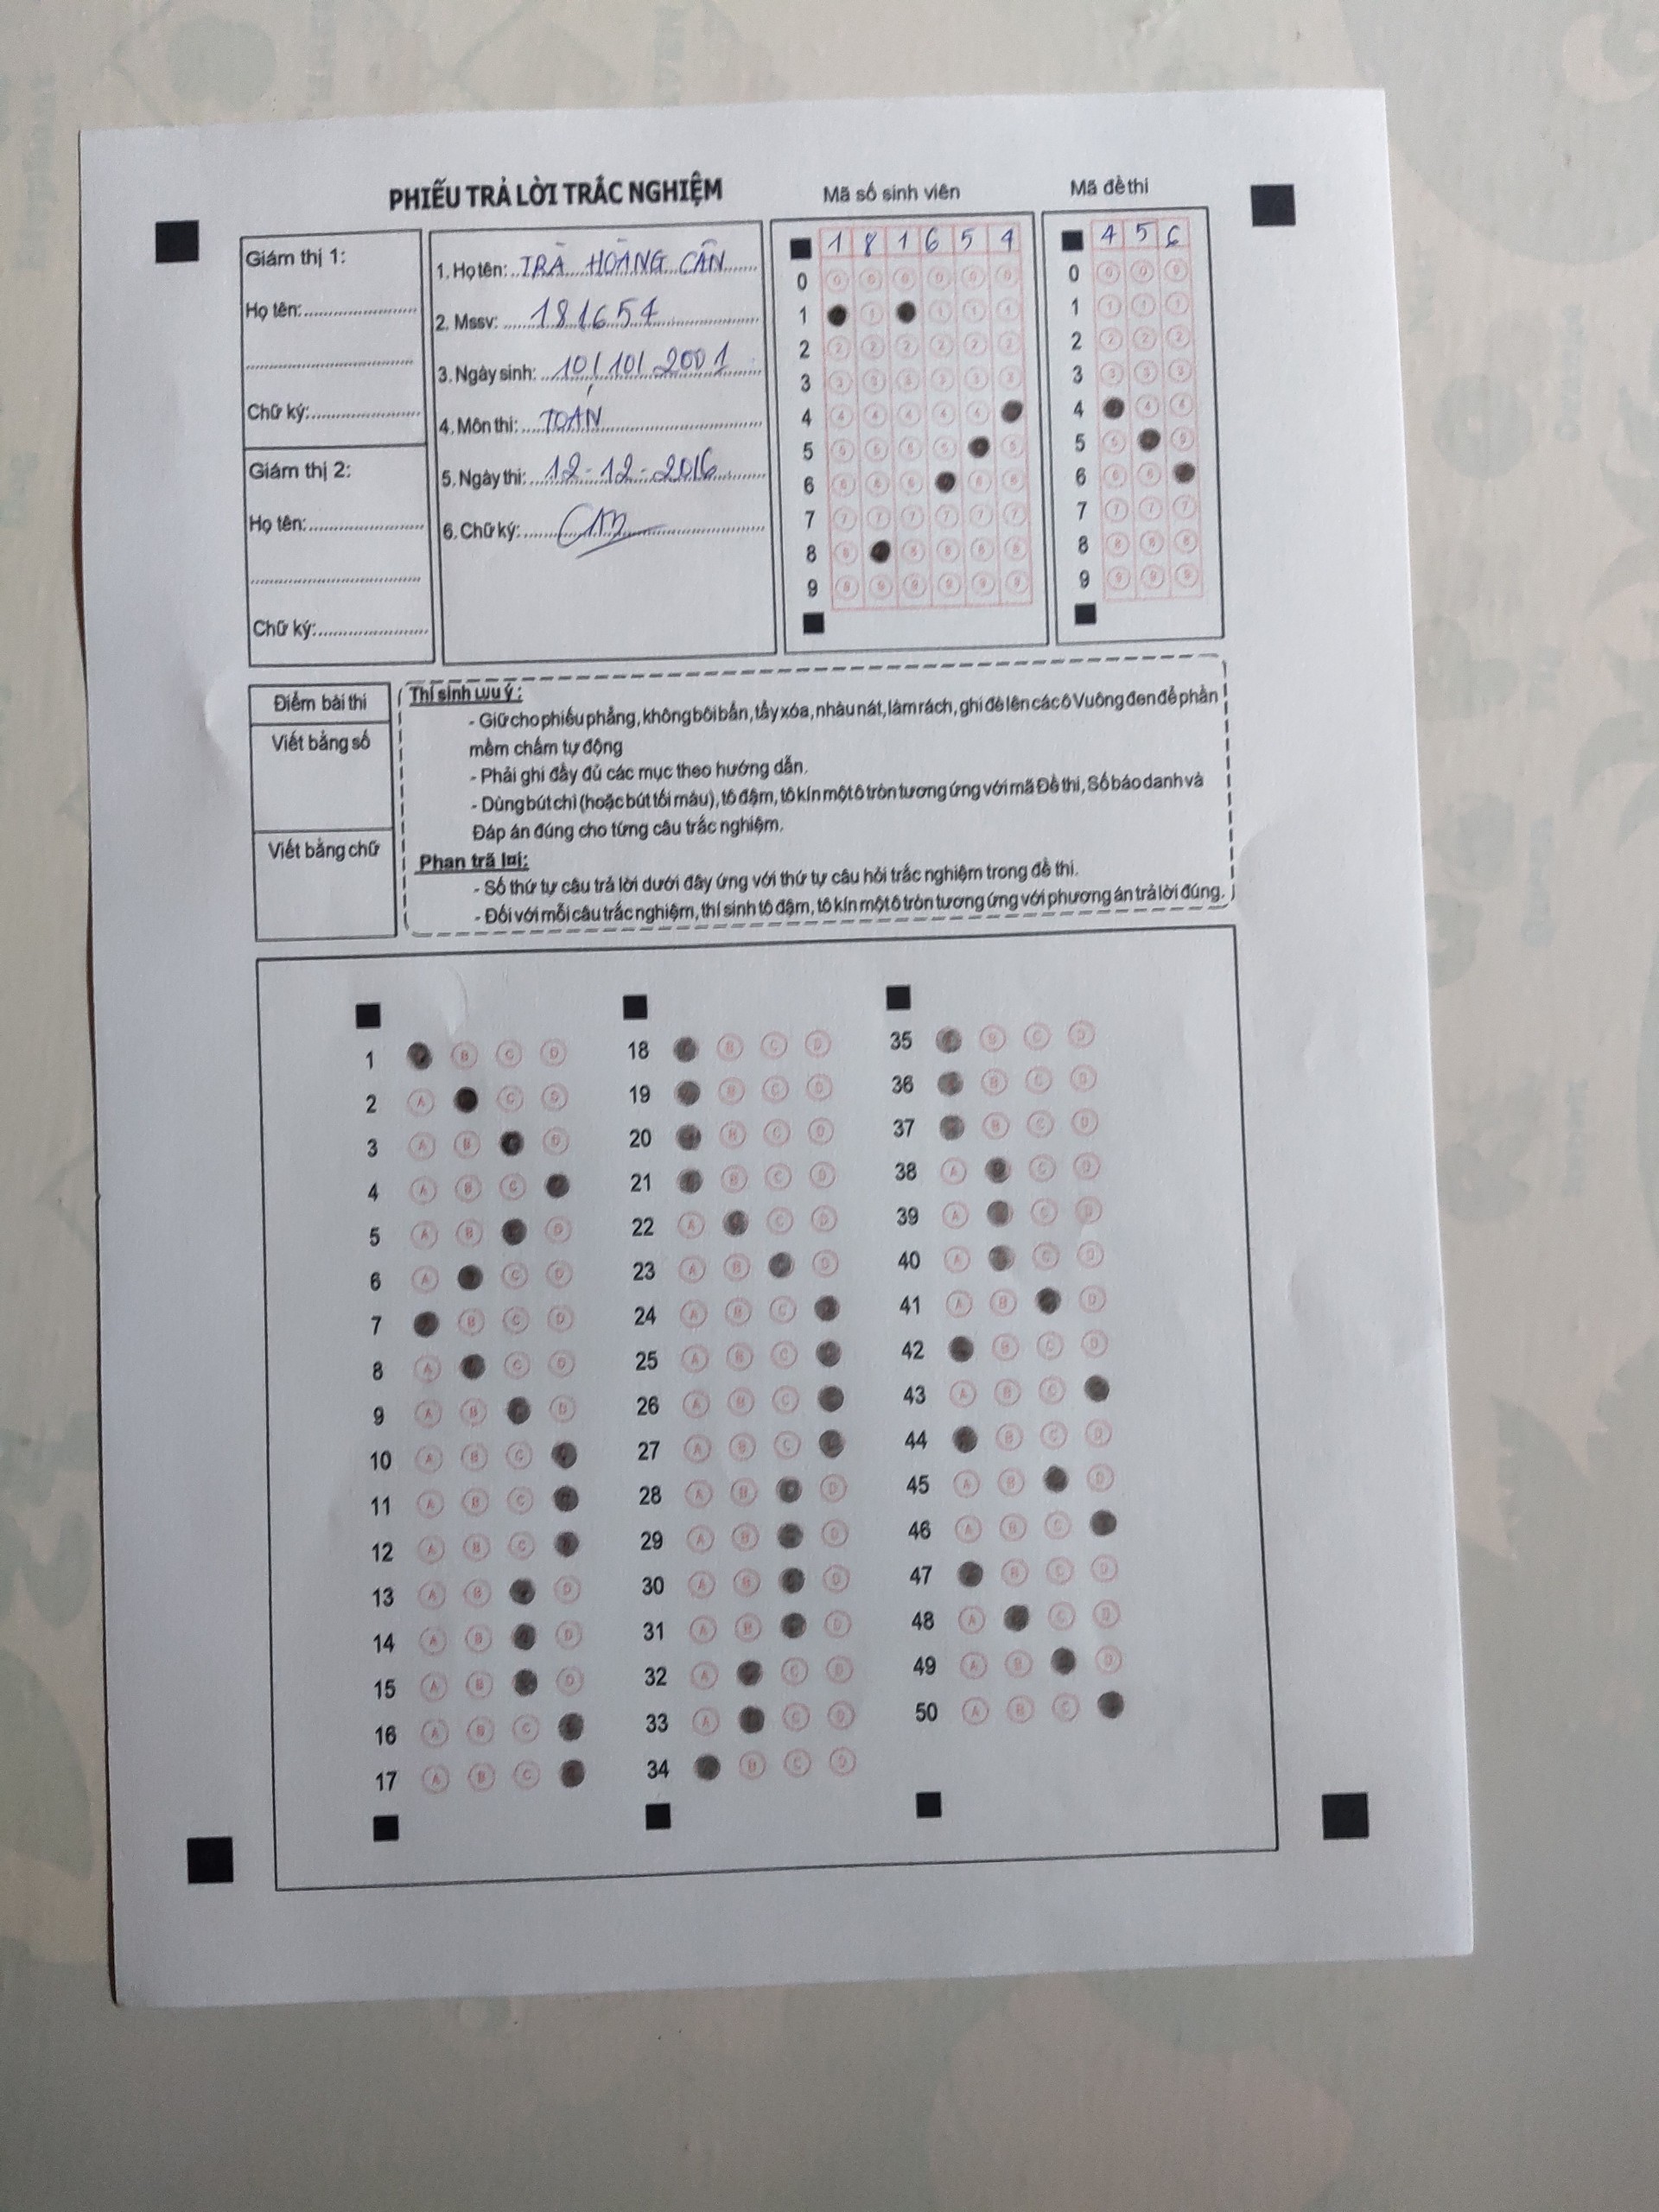 PHIẾU TRẢ LỜI TRẮC NGHIỆM
Mã số sinh viên
Mã đề thi
Giám thị 1:
Họ tên:
Chữ ký:
Giám thị 2:
Họ tên:
Chữ ký:
1. Họ tên: TRÀ HOÀNG CẦN
2. Mssv: 181654
3. Ngày sinh: 10/10/2001
4. Môn thi: TOÁN
5. Ngày thi: 12-12-2016
6. Chữ ký:
1 8 1 6 5 4
0 0 0 0 0 0 0
1 1 1 1 1
2 2 2 2 2 2 2
3 3 3 3 3 3 3
4 4 4 4 4 4
5 5 5 5 5 5
6 6 6 6 6 6
7 7 7 7 7 7 7
8 8 8 8 8 8
9 9 9 9 9 9 9
4 5 6
0 0 0 0
1 1 1 1
2 2 2 2
3 3 3 3
4 4 4
5 5 5
6 6 6
7 7 7 7
8 8 8 8
9 9 9 9
Điểm bài thi
Viết bằng số
Viết bằng chữ
Thí sinh lưu ý:
- Giữ cho phiếu phẳng, không bôi bẩn, tẩy xóa, nhàu nát, làm rách, ghi đè lên các ô Vuông đen để phần
mềm chấm tự động
- Phải ghi đầy đủ các mục theo hướng dẫn.
- Dùng bút chì (hoặc bút tối màu), tô đậm, tô kín một ô tròn tương ứng với mã Đề thi, Số báo danh và
Đáp án đúng cho từng câu trắc nghiệm.
Phan trã lơi:
- Số thứ tự câu trả lời dưới đây ứng với thứ tự câu hỏi trắc nghiệm trong đề thi.
- Đối với mỗi câu trắc nghiệm, thí sinh tô đậm, tô kín một ô tròn tương ứng với phương án trả lời đúng.
1 B C D
2 A C D
3 A B D
4 A B C
5 A B D
6 A C D
7 B C D
8 A C D
9 A B D
10 A B C
11 A B C
12 A B C
13 A B D
14 A B D
15 A B D
16 A B C
17 A B C
18 B C D
19 B C D
20 B C D
21 B C D
22 A C D
23 A B D
24 A B C
25 A B C
26 A B C
27 A B C
28 A B D
29 A B D
30 A B D
31 A B D
32 A C D
33 A C D
34 B C D
35 B C D
36 B C D
37 B C D
38 A C D
39 A C D
40 A C D
41 A B D
42 B C D
43 A B C
44 B C D
45 A B D
46 A B C
47 B C D
48 A C D
49 A B D
50 A B C